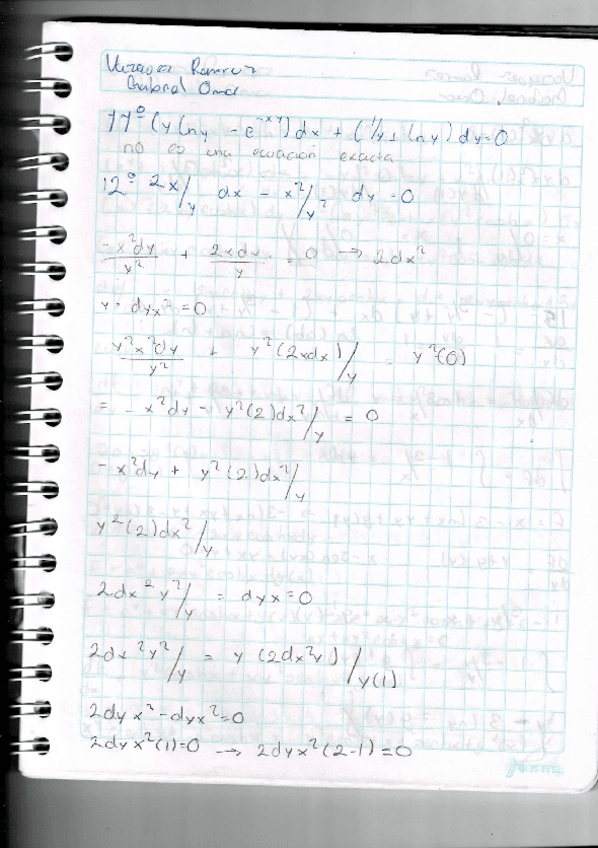 Ramirez
Gabriel Omar
11º (y ln y - e^-xy) dx + (1/y + ln y) dy = 0
no es una ecuación exacta
12º 2x/y dx - x²/y² dy = 0
-x²dy/y² + 2xdx/y = 0 → 2dx²
y · dyx² = 0
y²x²dy/y² + y²(2xdx)/y y²(0)
= - x²dy - y²(2)dx²/y = 0
- x²dy + y²(2)dx²/y
y²(2)dx²/y
2dx²y²/y = dyx = 0
2dx²y²/y = y(2dx²y)/y(1)
2dyx² - dyx² = 0
2dyx²(1) = 0 → 2dyx²(2-1) = 0